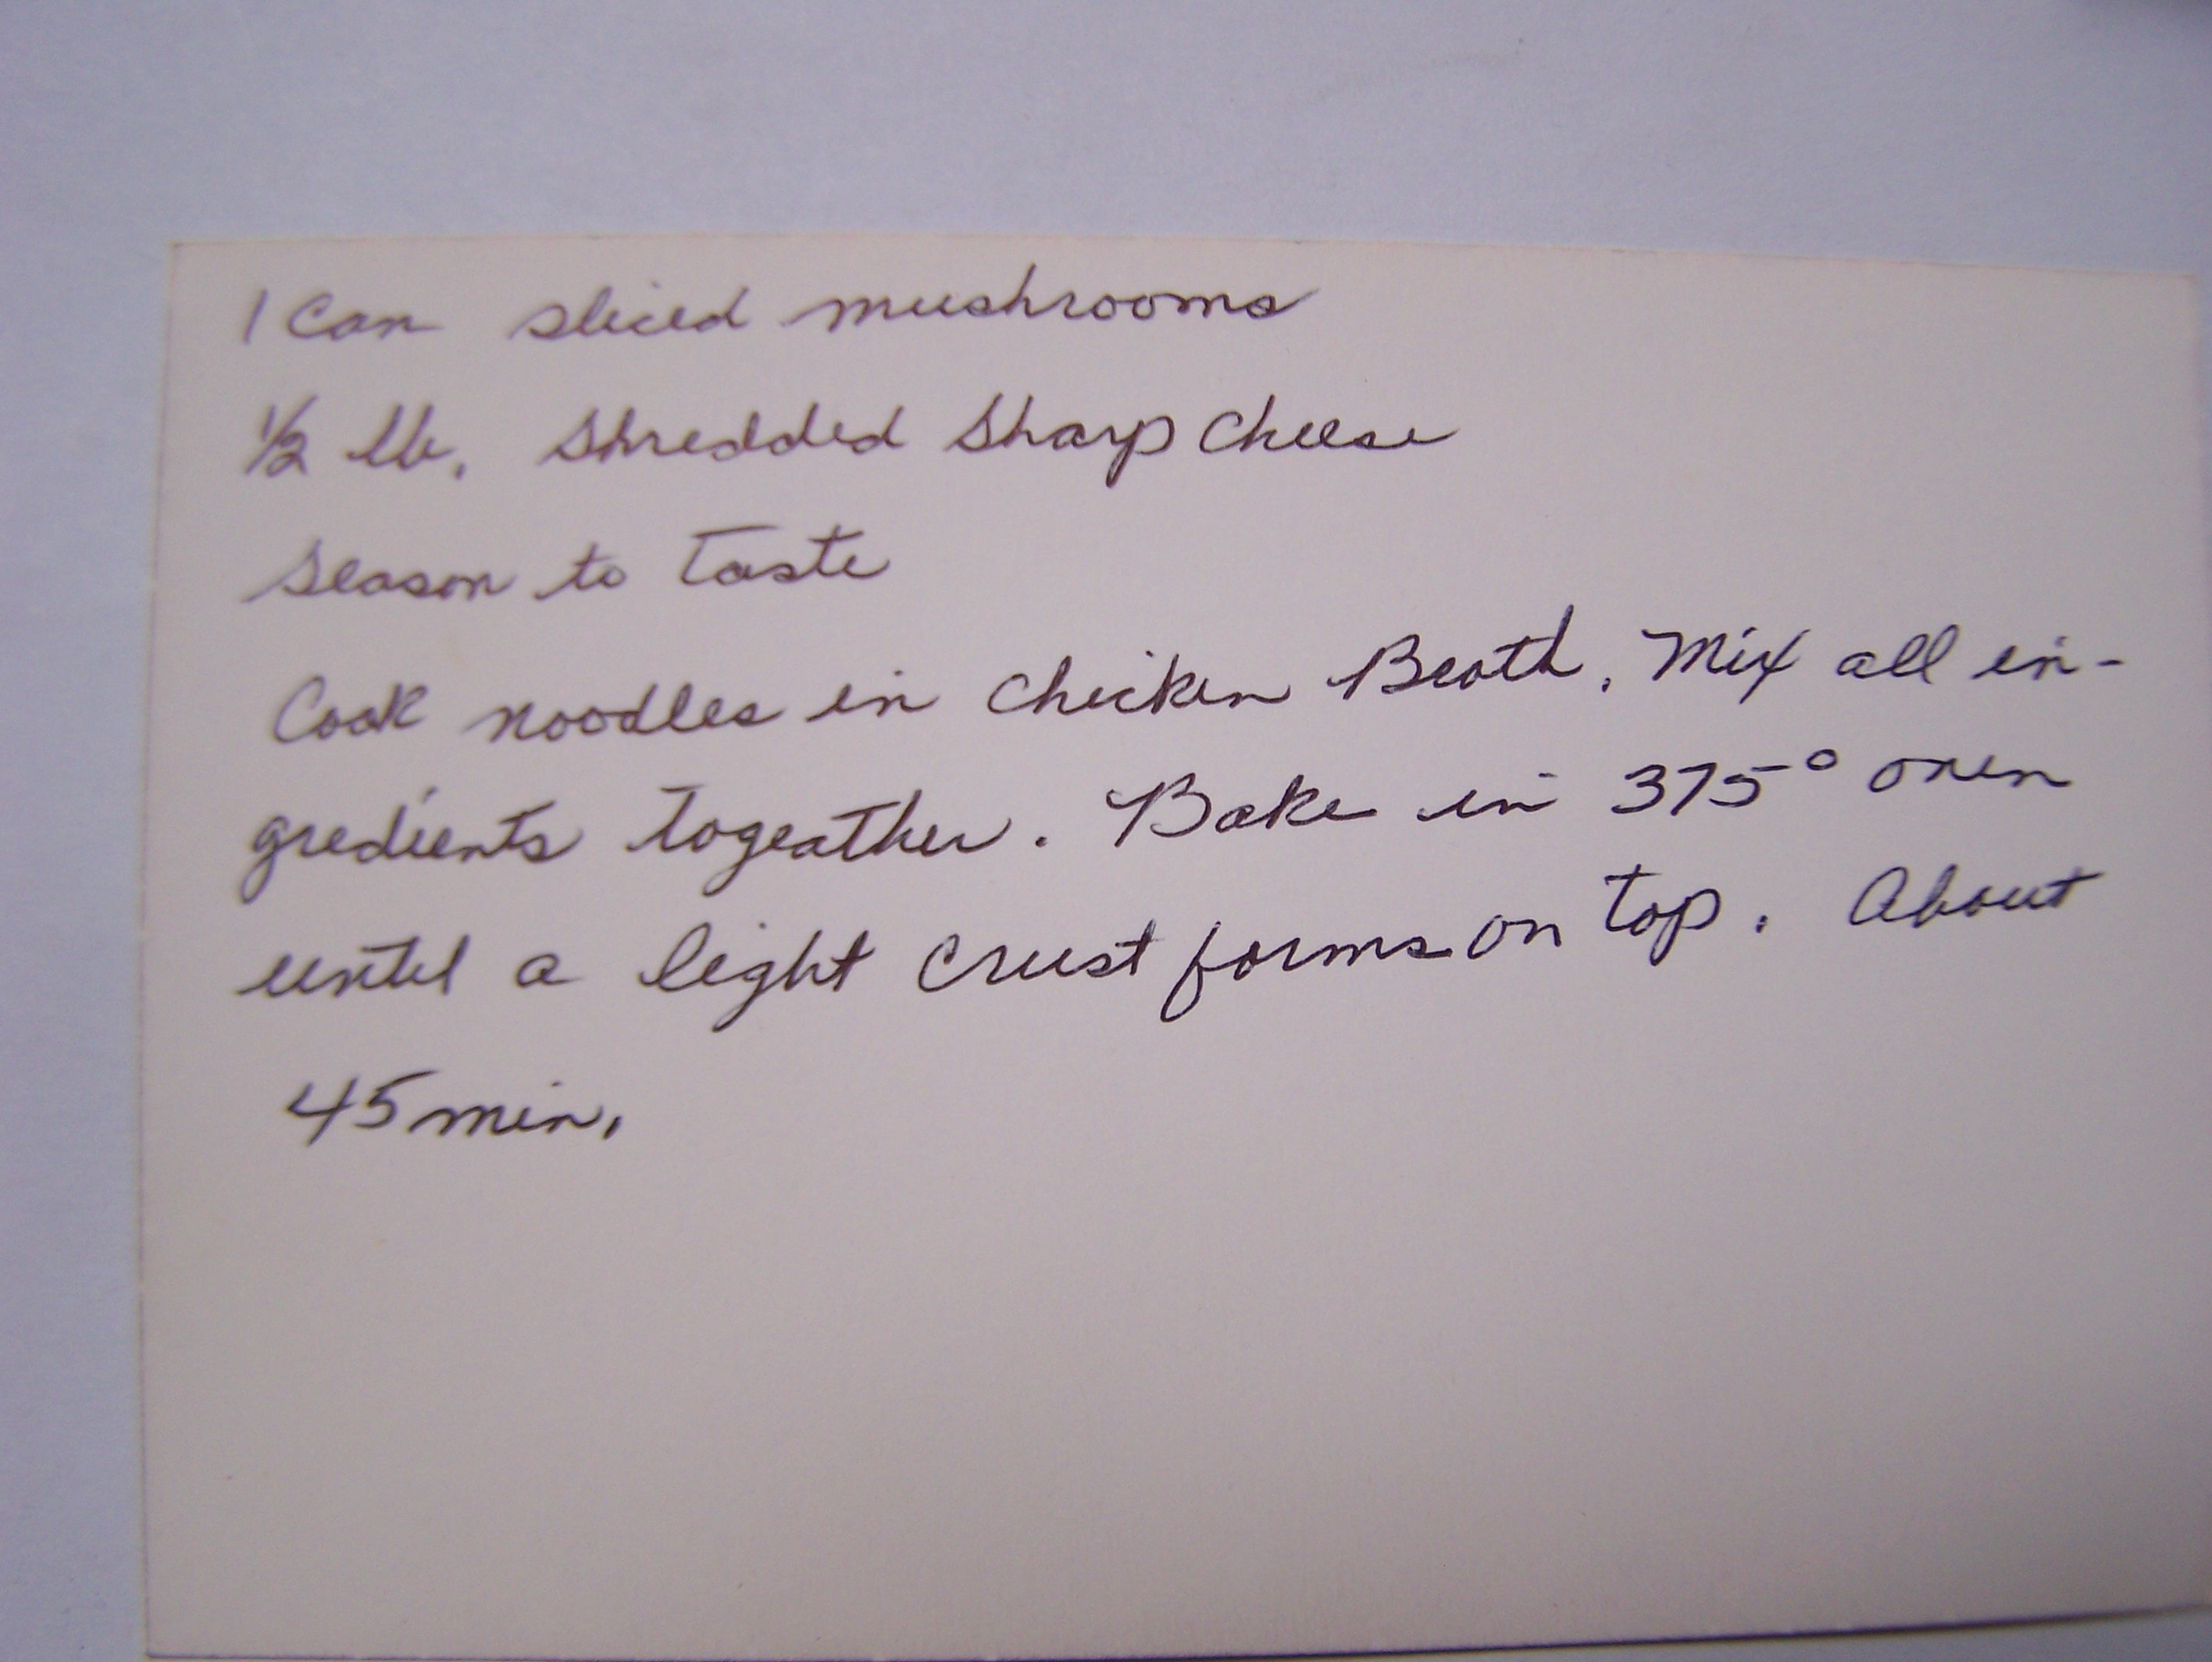 1 Can sliced mushrooms
1/2 lb. Shredded Sharp Cheese
Season to Taste
Cook noodles in Chicken Broth. Mix all in-
gredients togeather. Bake in 375° oven
until a light Crust forms on top. About
45 min.